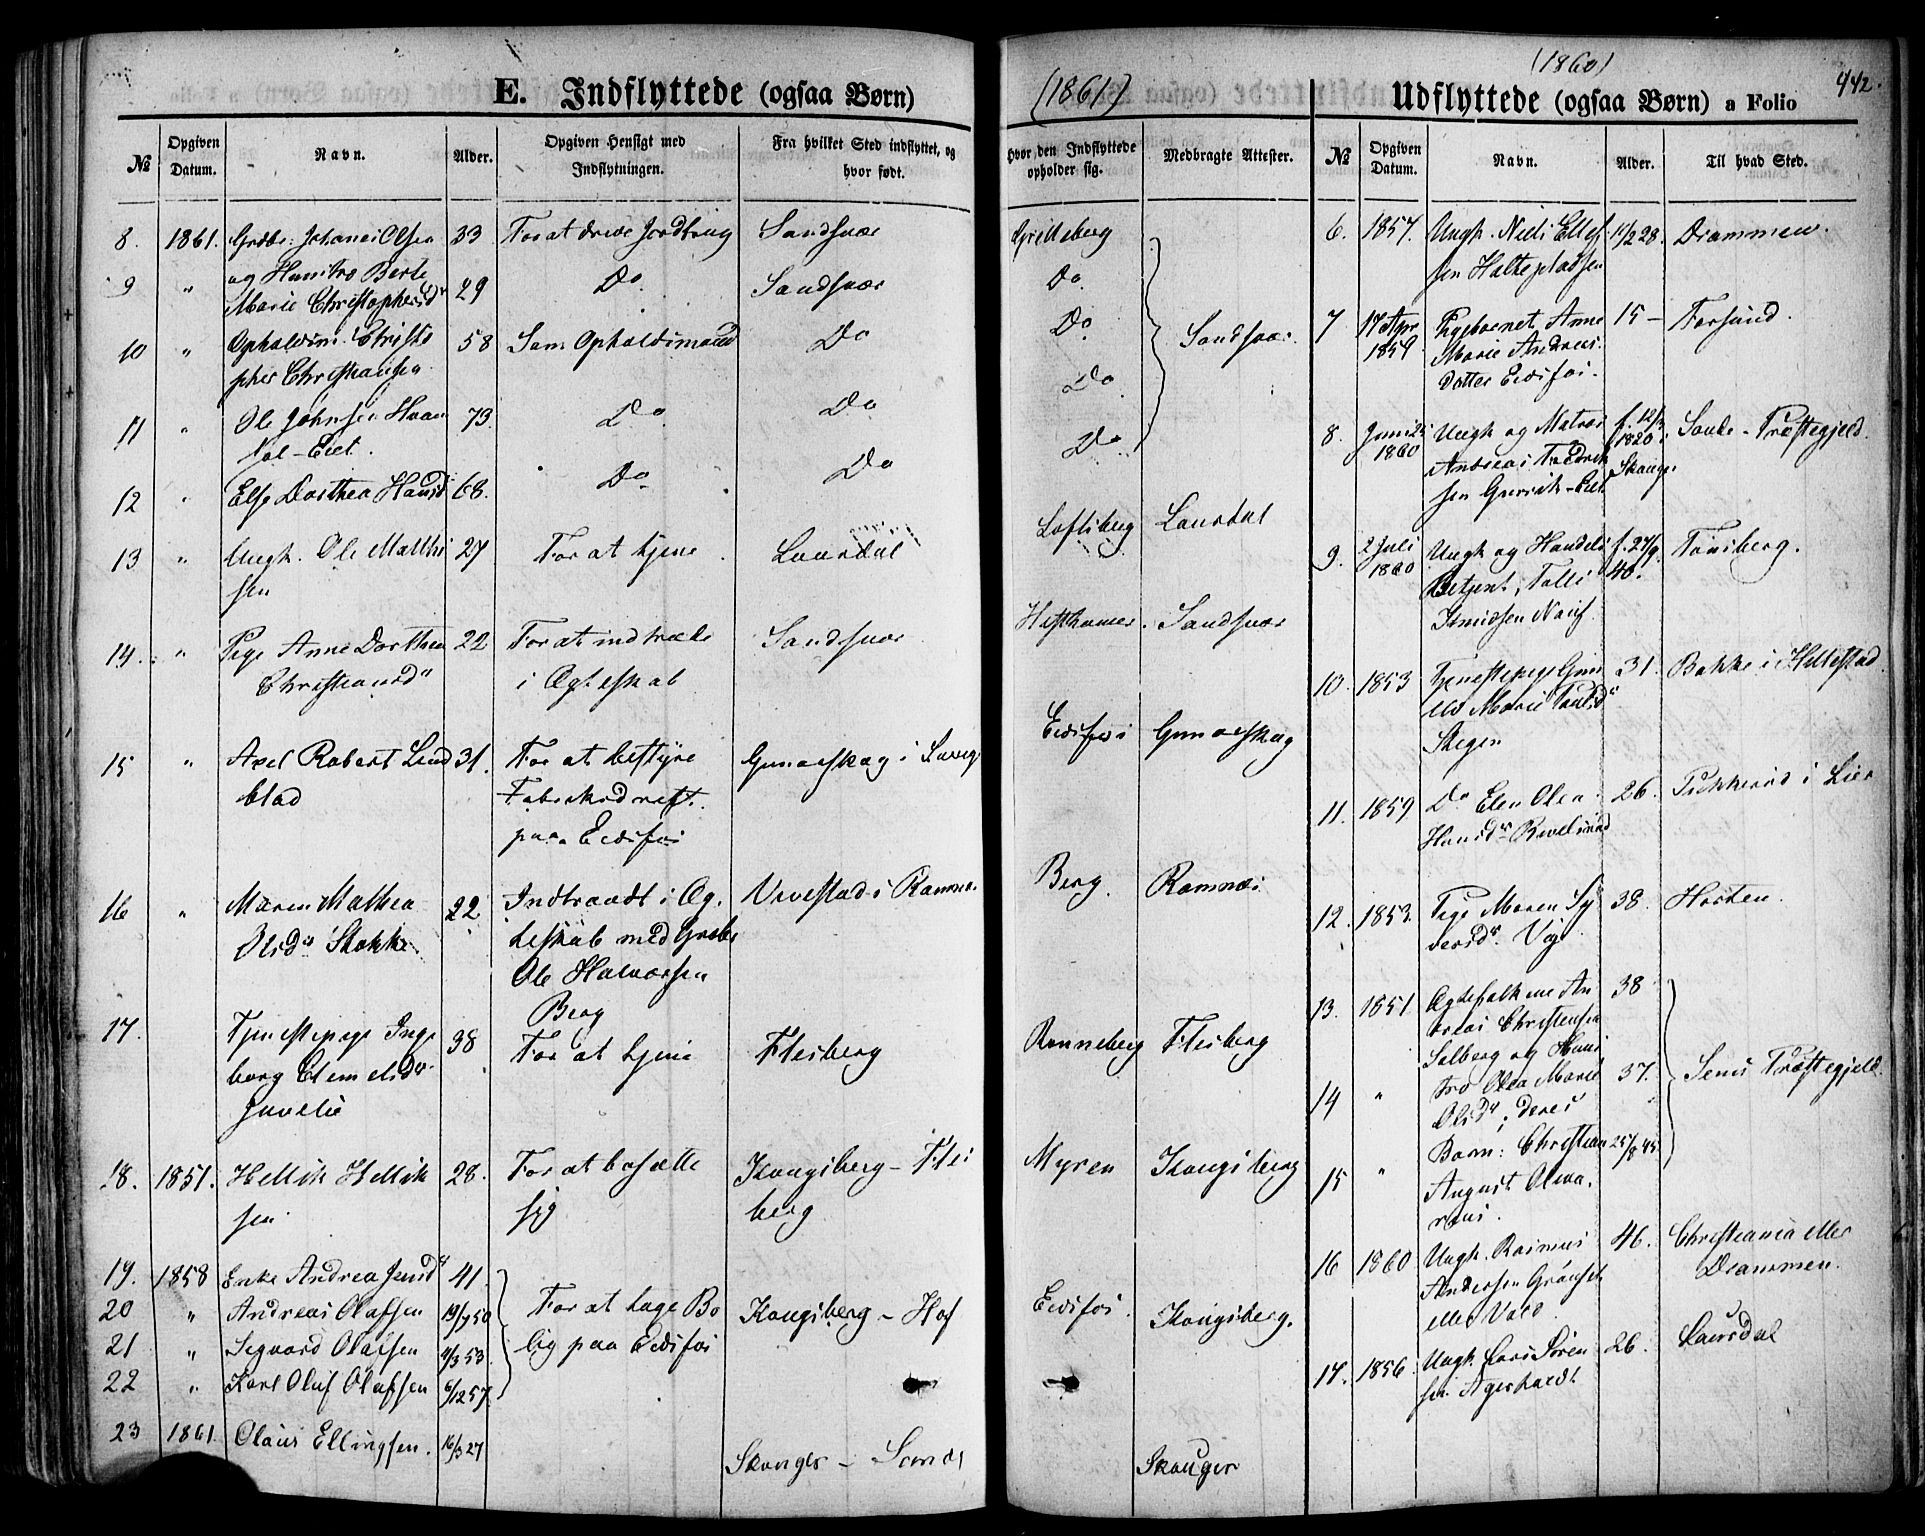 E. Indflyttede (ogsaa Børn)
(1861)
№ Opgiven Datum. Navn. Alder. Opgiven Hensigt med Indflytningen. Fra hvilket Sted indflyttet, og hvor født. Hvor den Indflyttede opholder sig. Medbragte Attester.
8. 1861. Grdbr: Johanes Olsen 33 For at drive Jordbrug Sandsvær Gretteberg
9 " og Hustro Berte
Marie Christophersdr 29 Do Sandsvær Do
10 " Opholdsm. Christo
pher Christiansen 58 Som Opholdsmand Do Do Sandsvær.
11 " Ole Johnsen
Eiet. 73. Do Do Do
12 " Else Dorthea Hansd 68. Do Do Do
13 " Ungk. Ole Mathi
sen 27 For at tjene Laurdal Loftsberg Laurdal
14. " Pige Anne Dorthea
Christiansdr 22 For at indtræde
i Ægteskab Sandsvær Sandsvær
15 " Axel Robert Lind
blad 31. For at bestyre
Fabrikdrift
paa Eidsfos Gunarskog i Sverig Eidsfos Gunarskog
16 " Maren Mathea
Olsdr Stokke. 22 Indtraadt i Æg.
teskab med Grdbr
Ole Halvorsen
Berg Vivestad i Ramnæs Berg. Ramnæs
17. Tjenestepige Inge
borg Clemetsdr 38 For at tjene Flesberg Ronneberg Flesberg
18. 1851. Hellik Hellik
sen. 28. For at bosætte
sig Kongsberg - Fles
berg Myren Kongsberg
19. 1858 Enke Andrea Jensdr 41.
20 " Andreas Olafsen 19/7 50 For at tage Bo
21 " Sigvard Olafsen 4/3 53 lig paa Eidsfos Kongsberg - Hof Eidsfos. Kongsberg.
22 " Karl Oluf Olafsen 6/12 57
23 1861 Olaus Ellingsen. 16/3 27 Skouger - Sande Skouger
(1860)
442.
Udflyttede (ogsaa Børn) a Folio
№ Opgiven Datum. Navn. Alder. Til hvad Sted.
6. 1857. Ungk. Niels Ellef
sen Holtepladsen 11/2 28. Drammen.
7 17 Apr
1859. Pigebarnet Anne
Marie Andreas
datter Eidsfos. 15 - Forsund.
8. Juni 25
1860 Ungk og Matros
Andreas Fredrik
sen f. 12/3
1820 i
Skouger Sande - Præstegjeld.
9. 2 Juli
1860 Ungk og Handels
Betjent, Tollef
Knudsen f. 27/9.
40. Tønsberg.
10. 1853 Tjenestepige Gun
ild Marie Paulsdr
Skogen 31. Bakke i Hillestad
11. 1859 Do Elen Olea
Hansdr 26. i Lier
12. 1853. Pige Maren Sy
versdr. 38. Horten.
13. 1851. Ægtefolkene An
dreas Christensen
Solberg og Hus 38
14 " tro Olea Marie
Olsdr; deres 37. Sems Præstegjeld
15 " Barn: Christian
August Olava
rius. 25/8 45.
16 1860 Ungk. Rasmus
Andersen Grønset
eller Vold 46. Christiania eller
Drammen.
17. 1856. Ungk. Lars Søren
sen Agerholdt 26. Laurdal